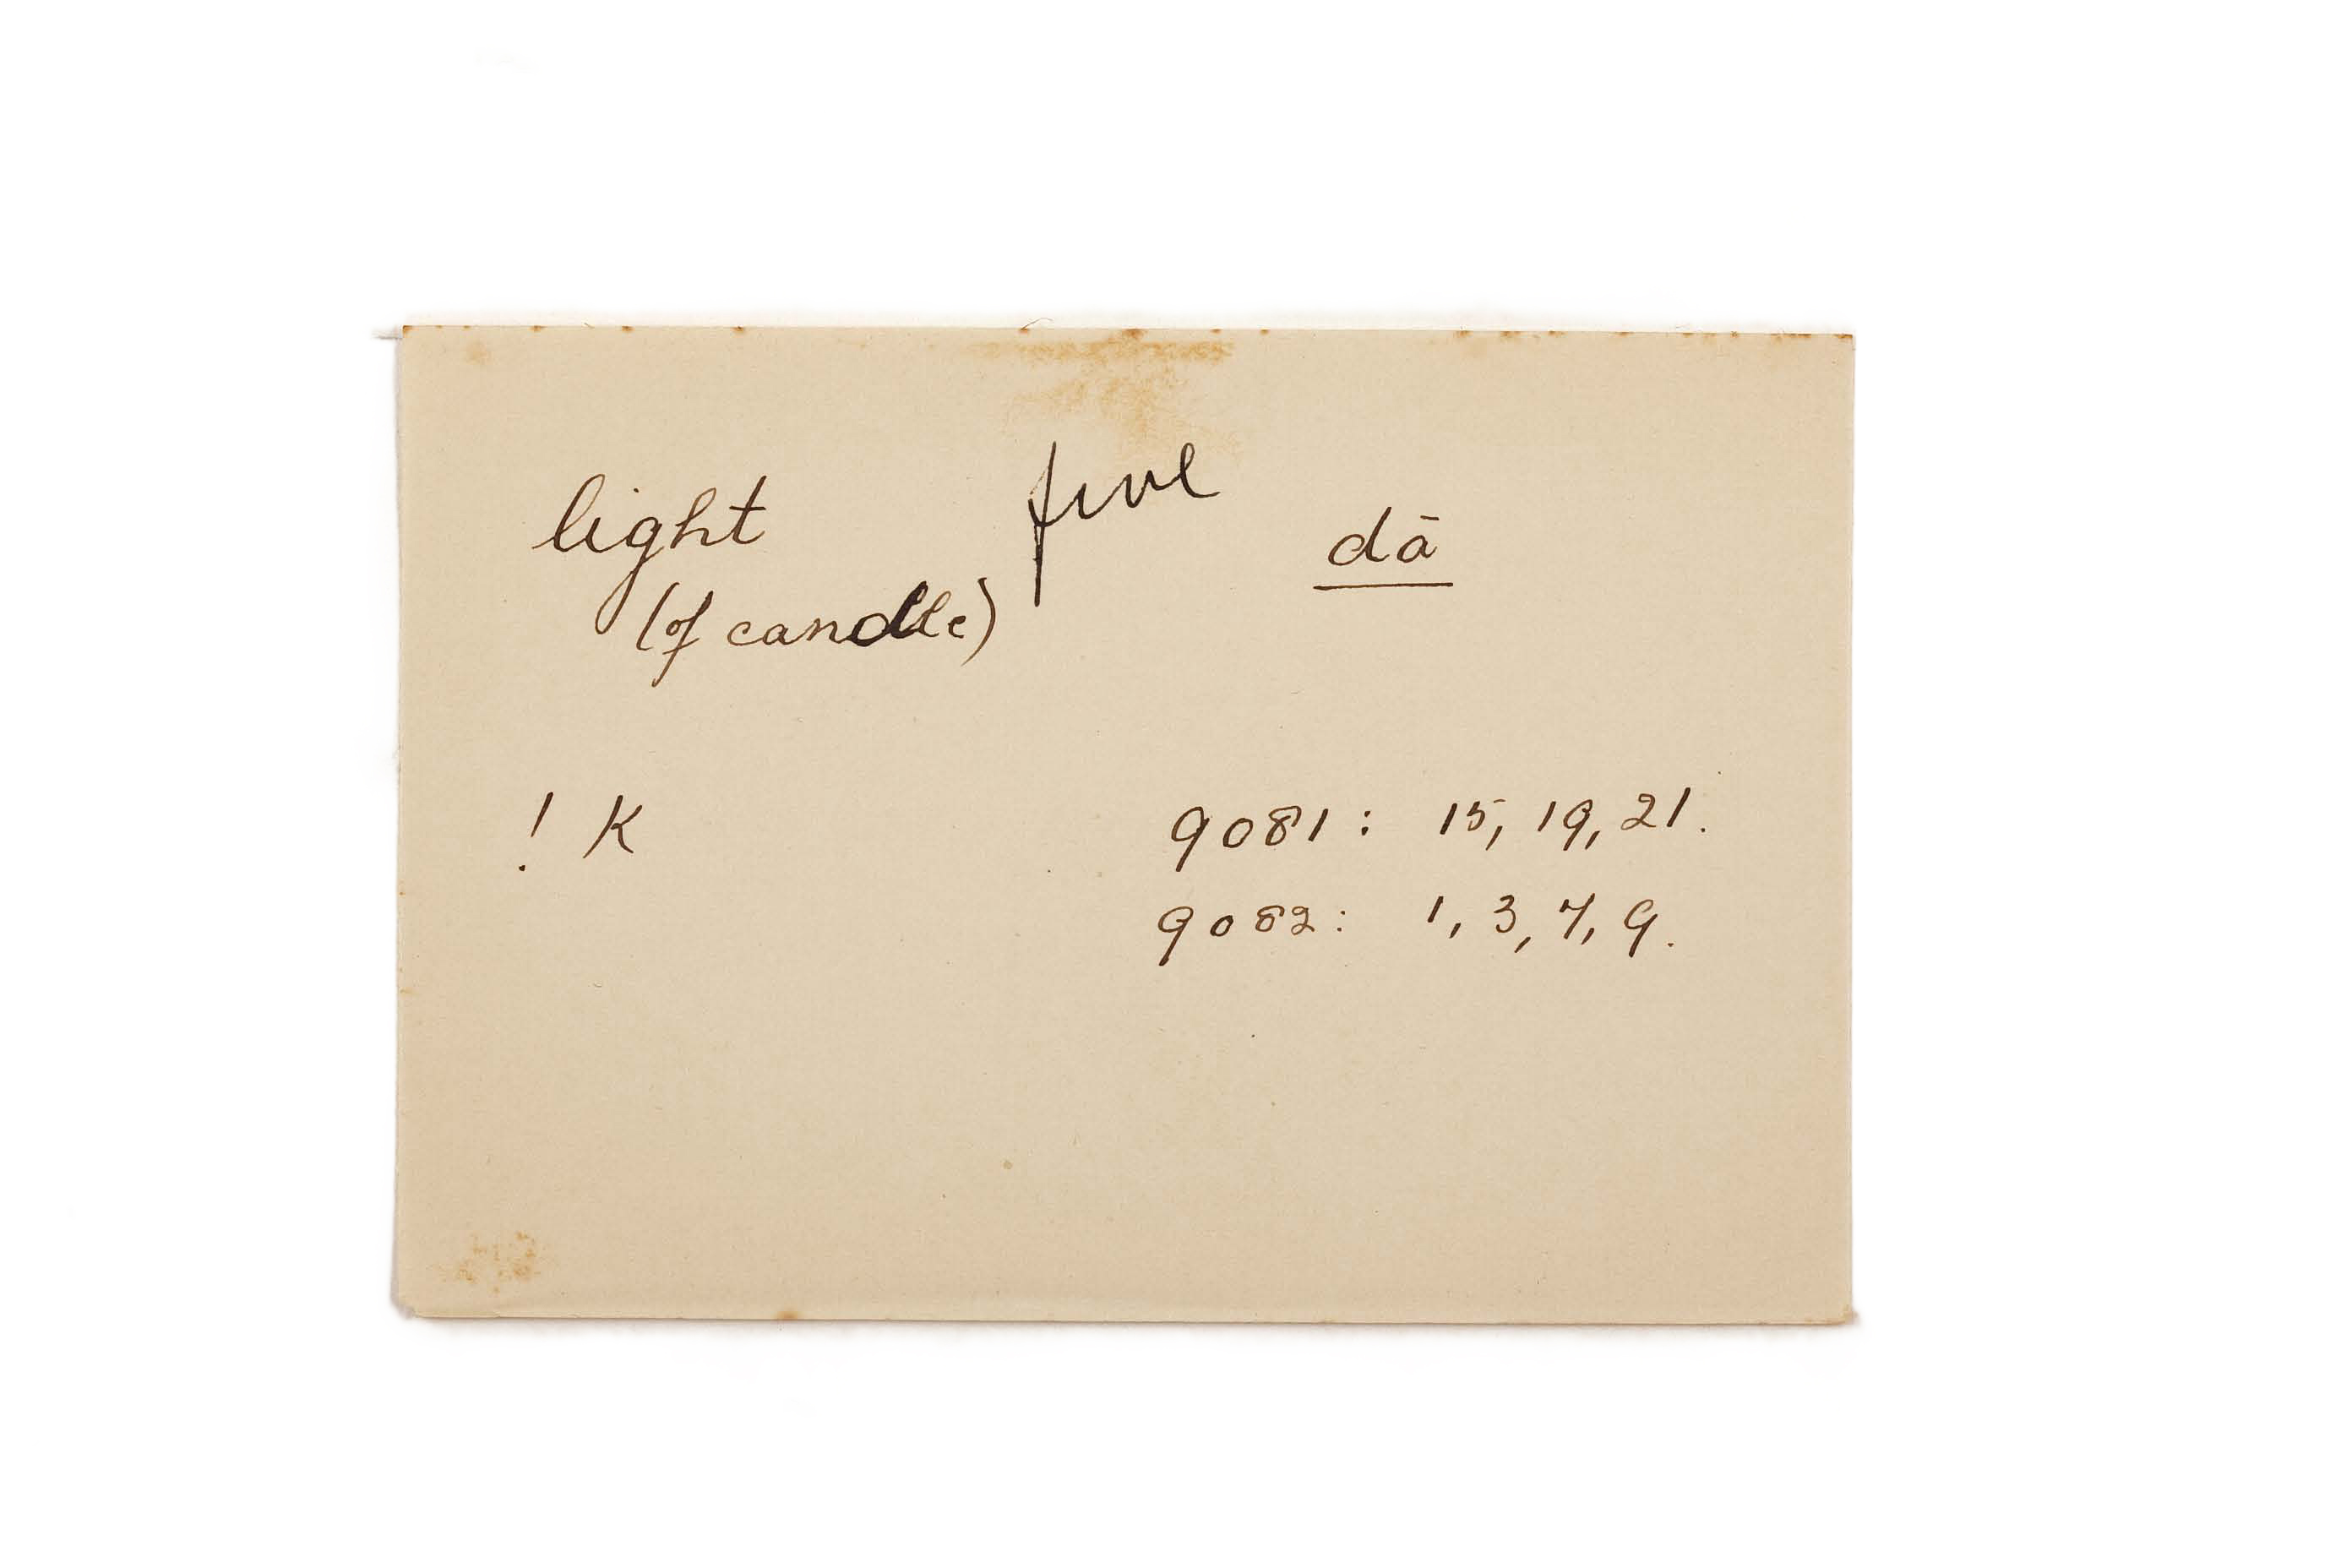 light fire dā
(of candle)
! K 9081: 15, 19, 21.
9082: 1, 3, 7, 9.